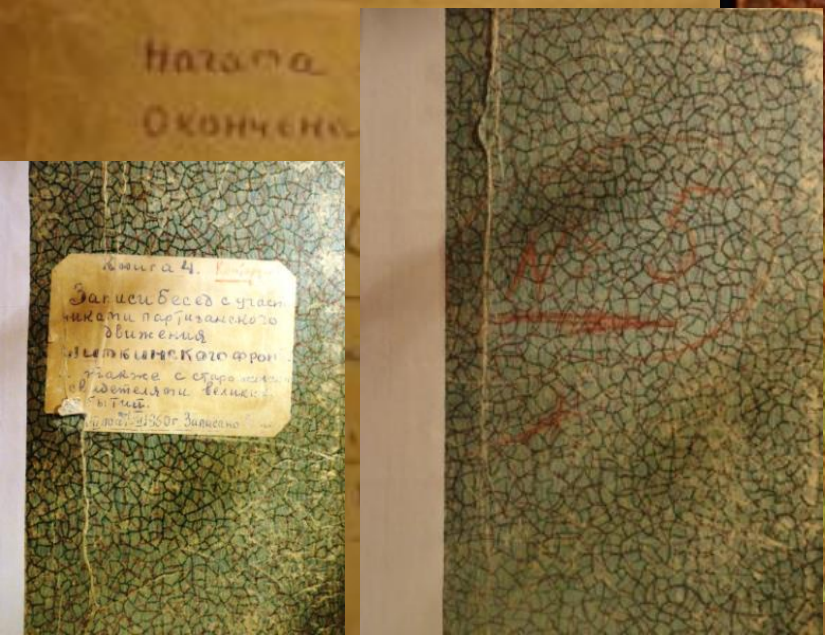 Начата
Окончена
Книга 4.
Записи бесед с участ
никами партизанского
движения
фрон
также с старо
свидетелями велик
бытий.
1960 г Записано
№ 5